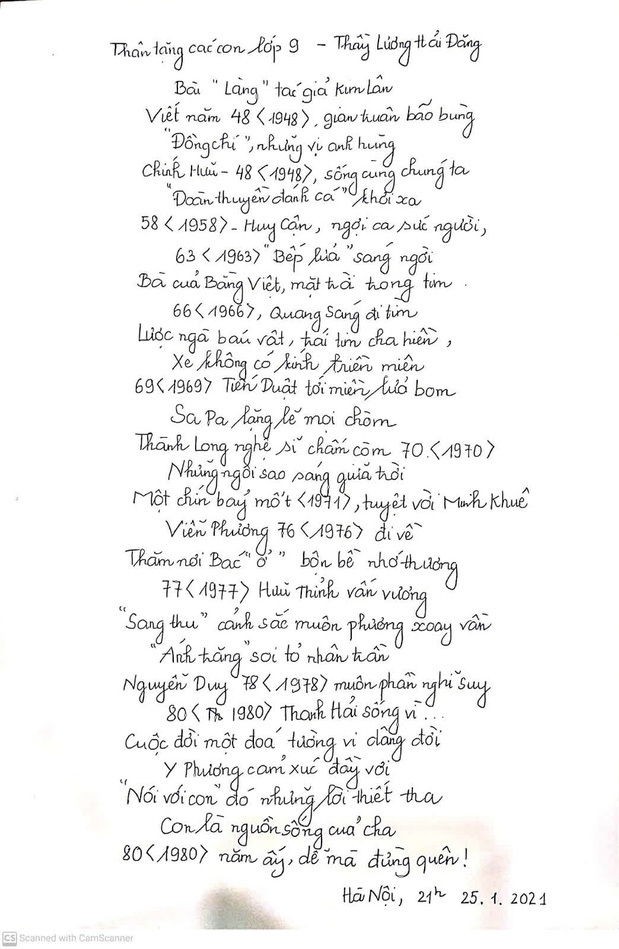 Thân tặng các con lớp 9 - Thầy Lương Hải Đăng
Bài "Làng" tác giả Kim Lân
Viết năm 48 <1948>, gian truân bão bùng
"Đồng chí", những vị anh hùng
Chính Hữu - 48 <1948>, sống cùng chúng ta
"Đoàn thuyền đánh cá" khơi xa
58 <1958> - Huy Cận, ngợi ca sức người,
63 <1963> "Bếp lửa" sáng ngời
Bà của Bằng Việt, mặt trời trong tim.
66 <1966>, Quang Sáng đi tìm
Lược ngà báu vật, trái tim cha hiền,
Xe không có kính triền miên
69 <1969> Tiến Duật tới miền lửa bom
Sa Pa lặng lẽ mọi chòm
Thành Long nghệ sĩ chấm còm 70. <1970>
Những ngôi sao sáng giữa trời
Một chín bảy mốt <1971>, tuyệt vời Minh Khuê
Viễn Phương 76 <1976> đi về
Thăm nơi Bác "ở" bộn bề nhớ thương
77 <1977> Hữu Thỉnh vấn vương
"Sang thu" cảnh sắc muôn phương xoay vần
"Ánh trăng" soi tỏ nhân trần
Nguyễn Duy 78 <1978> muôn phần nghĩ suy
80 < 1980> Thanh Hải sống vì ...
Cuộc đời một đoá tường vi dâng đời
Y Phương cảm xúc đầy vơi
"Nói với con" đó những lời thiết tha
Con là nguồn sống của cha
80 <1980> năm ấy, dễ mà đừng quên!
Hà Nội, 21h 25.1.2021
CS Scanned with CamScanner